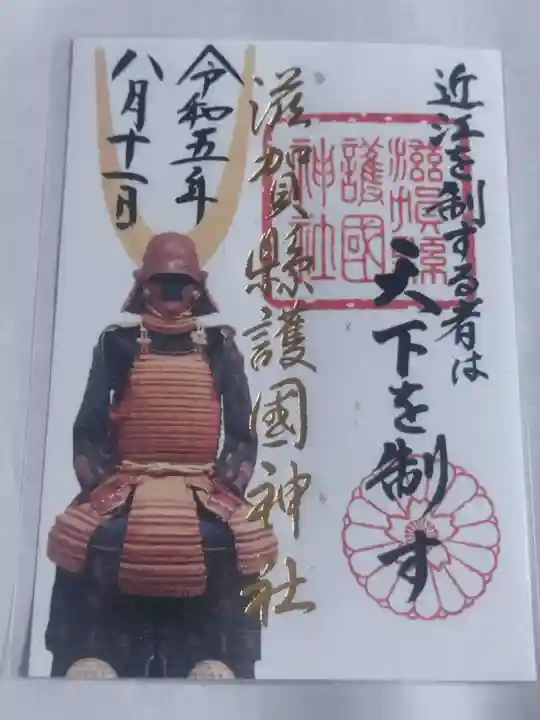 近江を制する者は
天下を制す
滋賀縣護國神社
滋賀県
護國
神社
令和五年
八月十一日